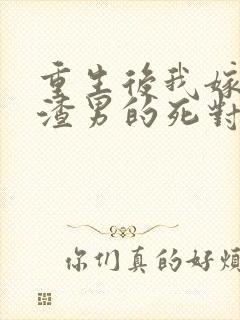 重生後我嫁
渣男的死對
你们真的好煩